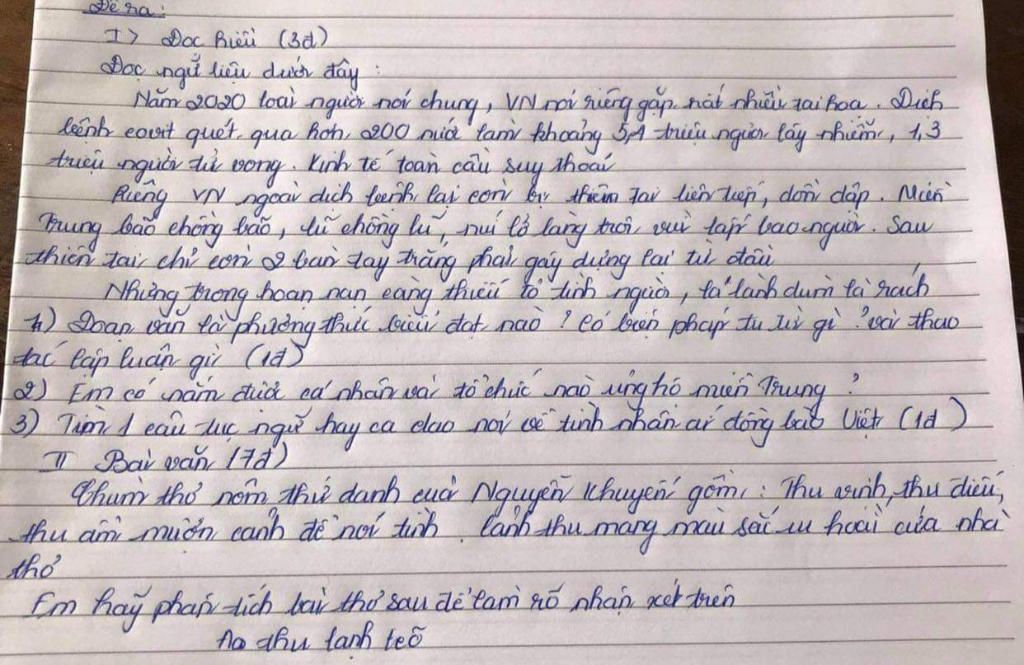 Đề ra:
I> Đọc hiểu (3đ)
Đọc ngữ liệu dưới đây:
Năm 2020 loài người nói chung, VN nói riêng gặp rất nhiều tai họa. Dịch
bệnh covit quét qua hơn 200 nước làm khoảng 5,1 triệu người lây nhiễm, 1,3
triệu người tử vong. Kinh tế toàn cầu suy thoái
Riêng VN ngoài dịch bệnh lại còn bị thiên tai liên tiếp, dồn dập. Miền
Trung bão chồng bão, lũ chồng lũ, núi lở làng trôi, vùi lấp bao người. Sau
thiên tai chỉ còn 2 bàn tay trắng phải gây dựng lại từ đầu
Nhưng trong hoạn nạn càng thấu tỏ tình người, lá lành đùm lá rách
1) Đoạn văn là phương thức biểu đạt nào? Có biện pháp tu từ gì? và thao
tác lập luận gì (1đ)
2) Em có nắm được cá nhân và tổ chức nào ủng hộ miền Trung?
3) Tìm 1 câu tục ngữ hay ca dao nói về tình nhân ái đồng bào Việt (1đ)
II Bài văn (7đ)
Chùm thơ nôm thứ danh của Nguyễn Khuyến gồm: Thu vịnh, thu điếu,
thu ẩm mượn cảnh để nói tình. Cảnh thu mang màu sắc u hoài của nhà
thơ
Em hãy phân tích bài thơ sau để làm rõ nhận xét trên
Ao thu lạnh lẽo